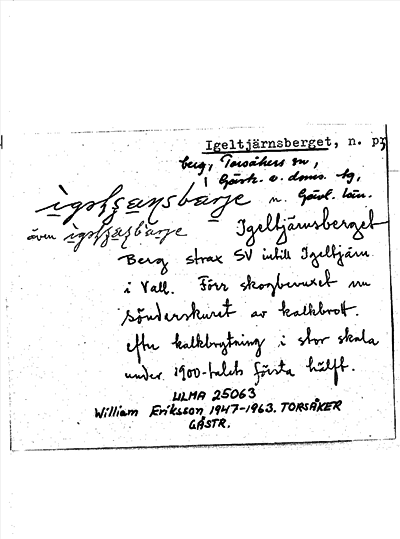 Igeltjärnsberget, n. pz
berg, Torsåkers sn,
Gästr. ö. doms. tg,
n. Gävl. län.
även
Igeltjärnsberget
Berg strax SV intill Igeltjärn
i Vall. Förr skogbevuxet nu
sönderskuret av kalkbrott.
efter kalkbrytning i stor skala
under 1900-talets första hälft.
ULMA 25063
William Eriksson, 1947-1963. TORSÅKER
GÄSTR.